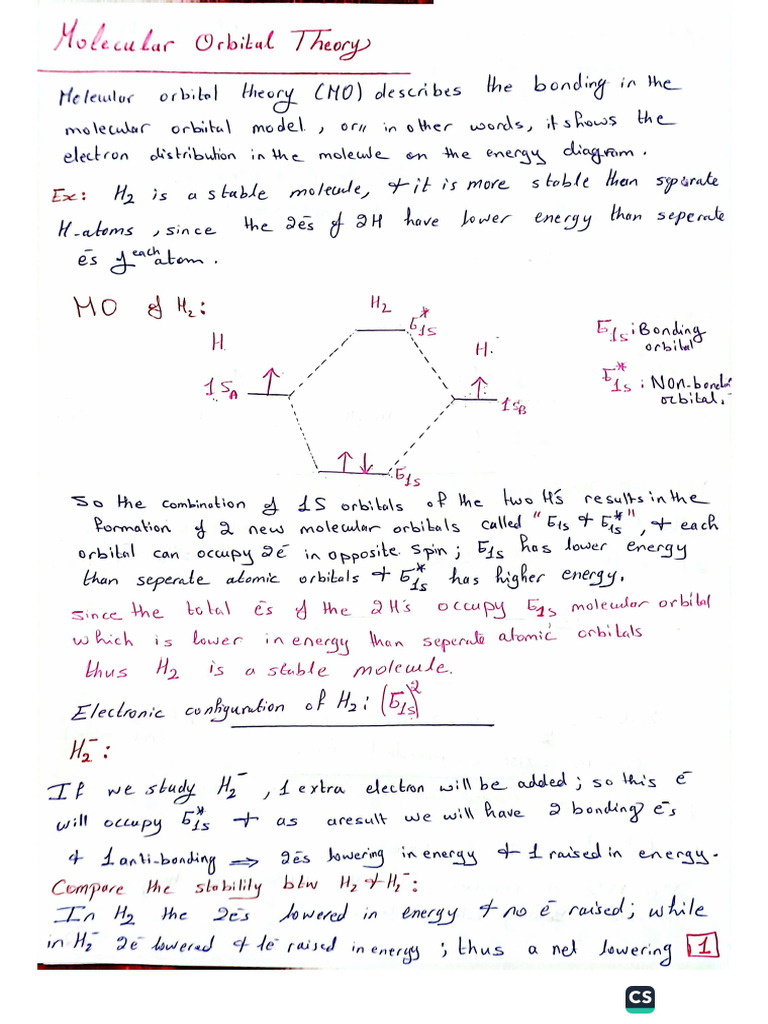 Molecular Orbital Theory
Molecular orbital theory (MO) describes the bonding in the
molecular orbital model, or in other words, it shows the
electron distribution in the molecule on the energy diagram.
Ex: H₂ is a stable molecule, & it is more stable than separate
H-atoms, since the 2ēs of 2H have lower energy than seperate
ēs of each atom.
MO of H₂:
H₂
σ*1s
H.
H.
1S_A ↑
↑ 1S_B
↑↓ σ1s
σ1s: Bonding
orbital
σ*1s: Non-bondin
orbital.
So the combination of 1S orbitals of the two H's results in the
formation of 2 new molecular orbitals called "σ1s & σ*1s", & each
orbital can occupy 2ē in opposite spin; σ1s has lower energy
than seperate atomic orbitals & σ*1s has higher energy.
since the total ēs of the 2H's occupy σ1s molecular orbital
which is lower in energy than seperate atomic orbitals
thus H₂ is a stable molecule.
Electronic configuration of H₂: (σ1s)²
H₂⁻:
If we study H₂⁻, 1 extra electron will be added; so this ē
will occupy σ*1s & as aresult we will have 2 bonding ē's
& 1 anti-bonding ⇒ 2ēs lowering in energy & 1 raised in energy.
Compare the stability btw H₂ & H₂⁻:
In H₂ the 2ēs lowered in energy & no ē raised; while
in H₂⁻ 2ē lowered & 1ē raised in energy; thus a net lowering 1
CS